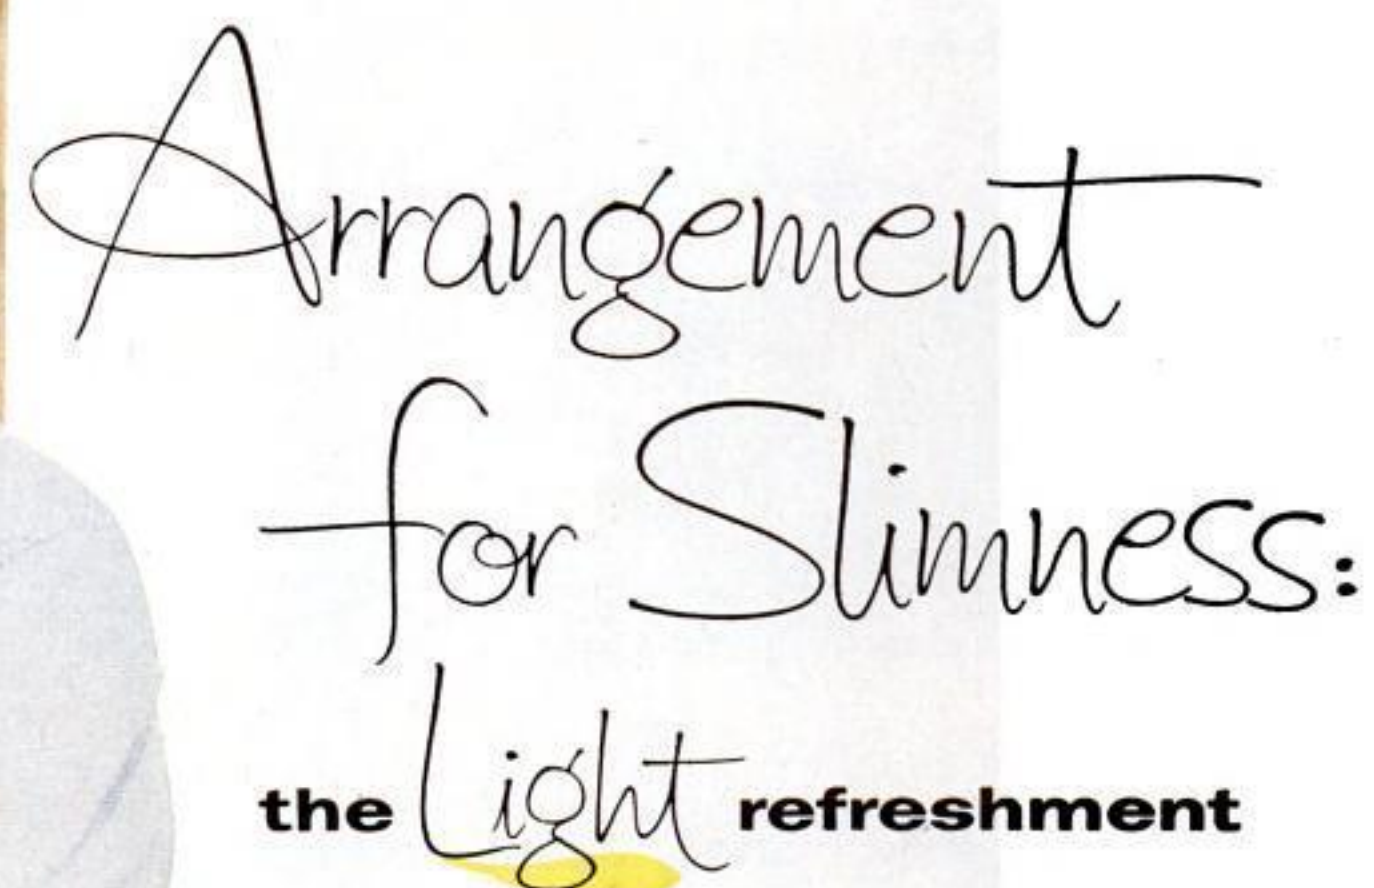 Arrangement
for Slimness:
the Light refreshment